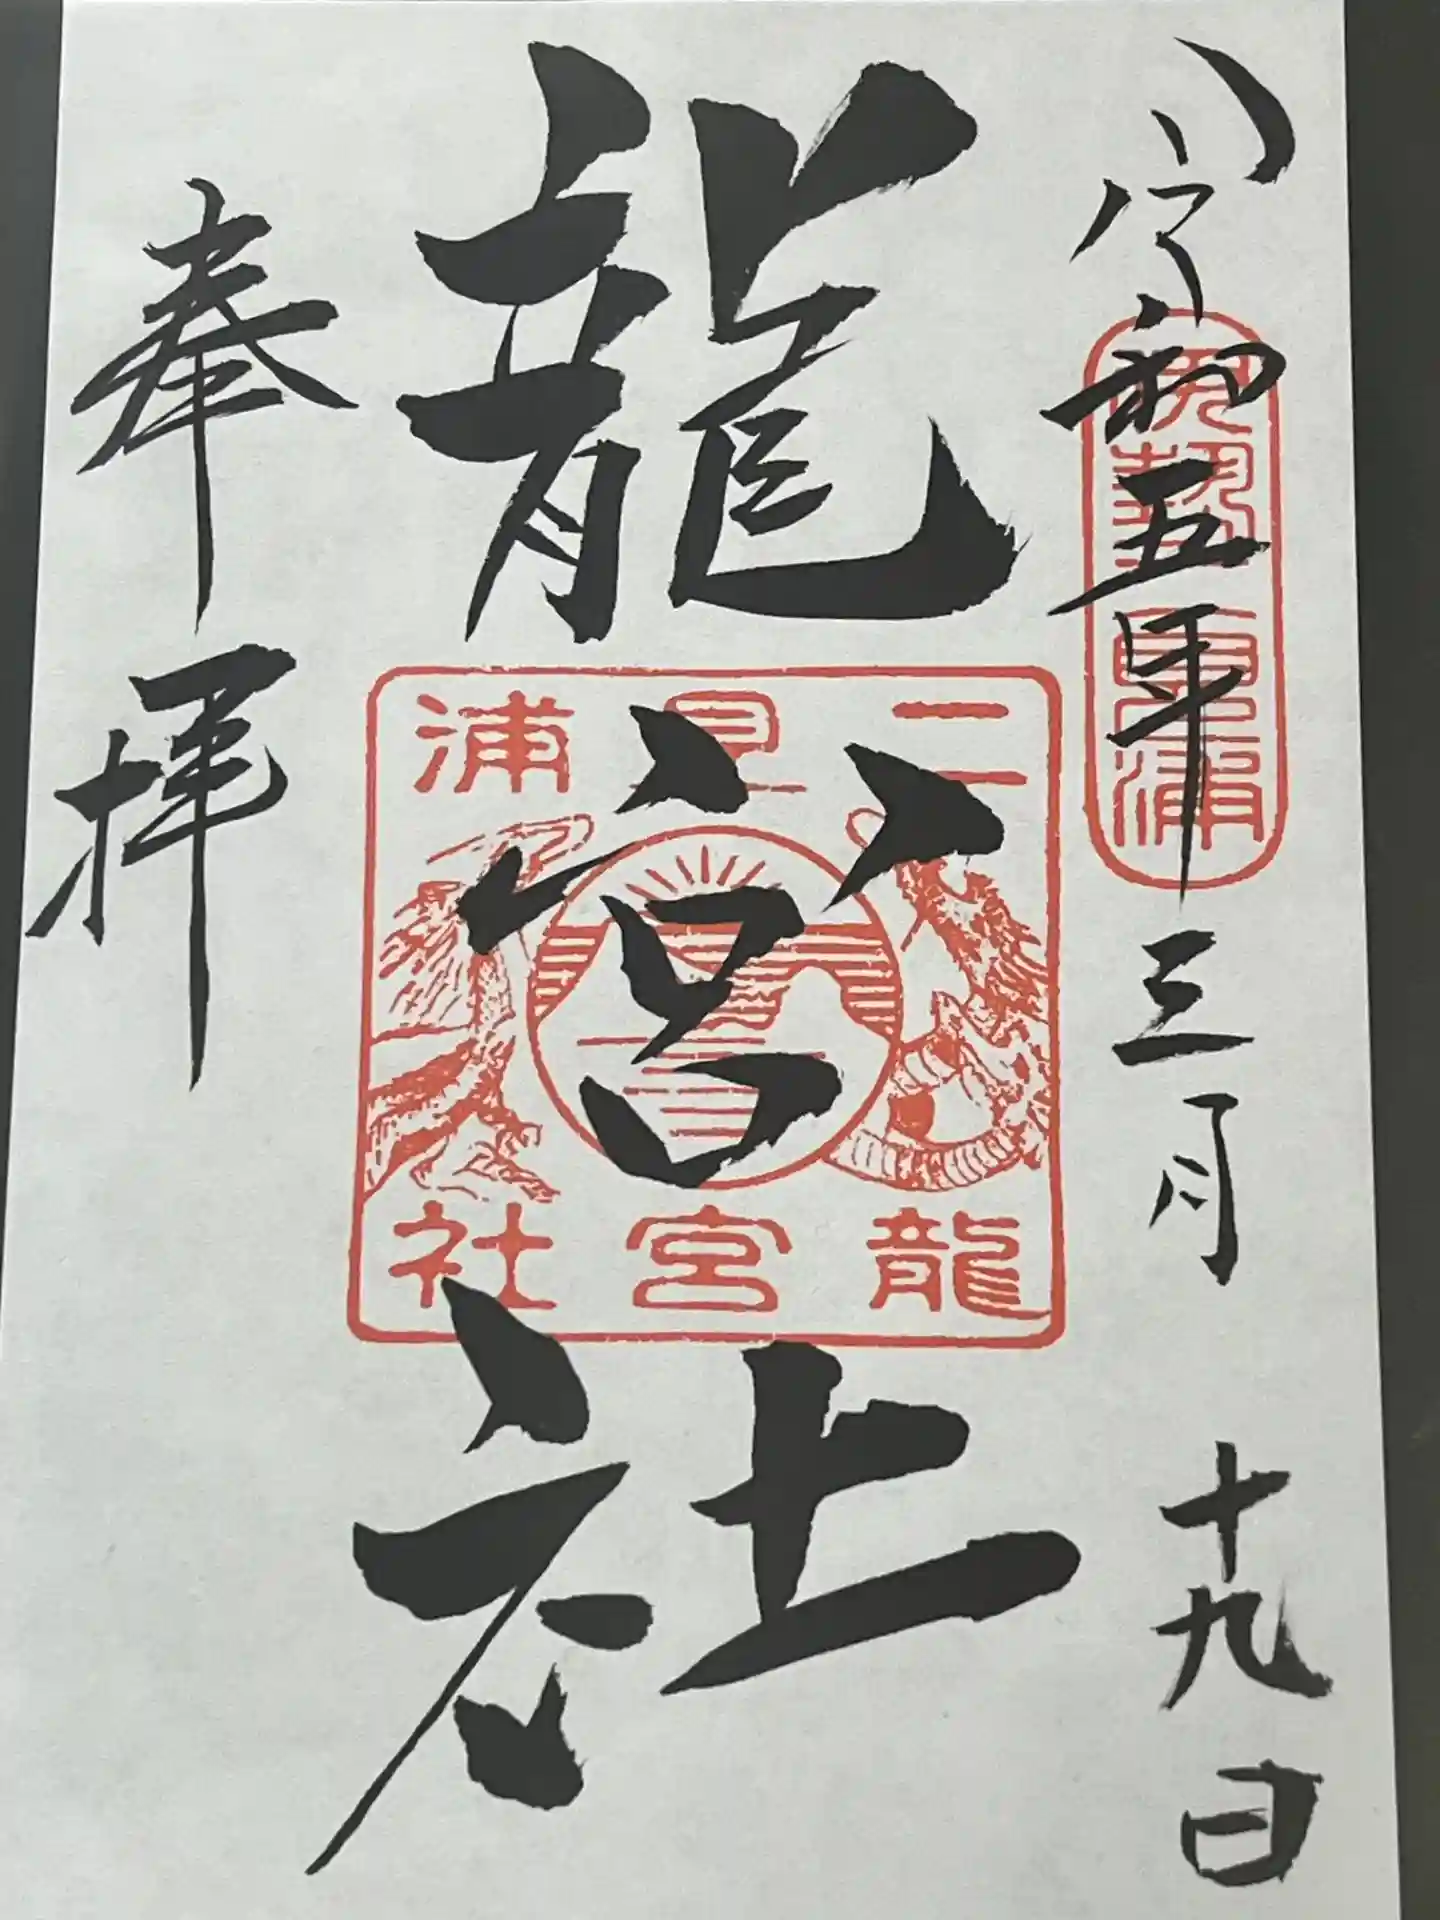 令和五年三月十九日
伊勢二見浦
龍宮社
二見浦
龍宮社
奉拝